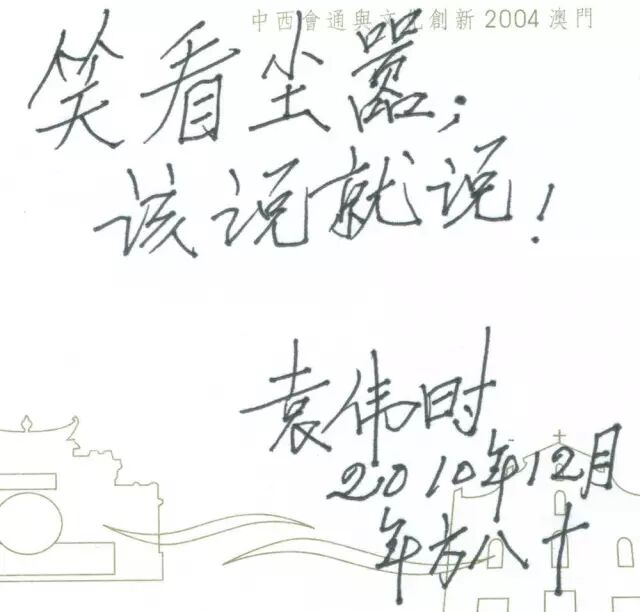 中西會通與文化創新 2004 澳門
笑看尘嚣；
该说就说！
袁伟时
2010年12月
年方八十